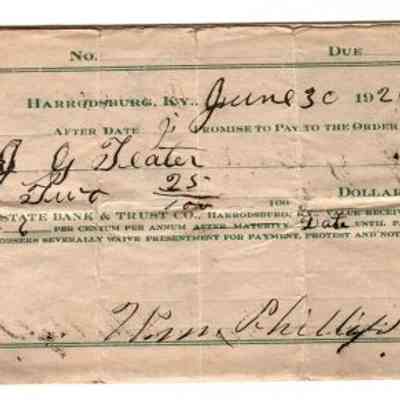 No. Due
Harrodsburg, Ky., June 30 192
After Date I Promise to Pay to the Order
J G Teater
Two 25/100 100 Dollar
State Bank & Trust Co., Harrodsburg, Ky. Value Receiv
6 per centum per annum after maturity Date until pa
orsers severally waive presentment for payment, protest and not
Phillips